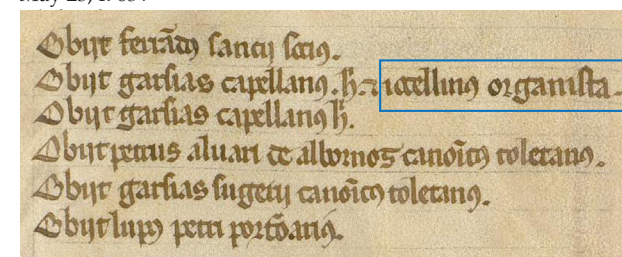 Obijt ferrãdꝰ sancij sociꝰ.
Obijt garsias capellanꝰ. h̃. ⁊ iocellinꝰ organista.
Obijt garsias capellanꝰ h̃.
Obijt petrus aluari de albornos canoı̃cꝰ toletanꝰ.
Obijt garsias sugerij canoı̃cꝰ toletanꝰ.
Obijt lupꝰ petri portõariꝰ.